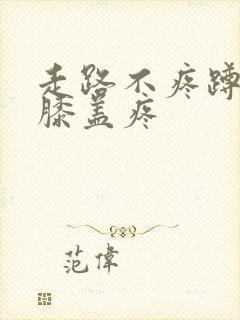 走路不疼蹲
膝盖疼
范偉